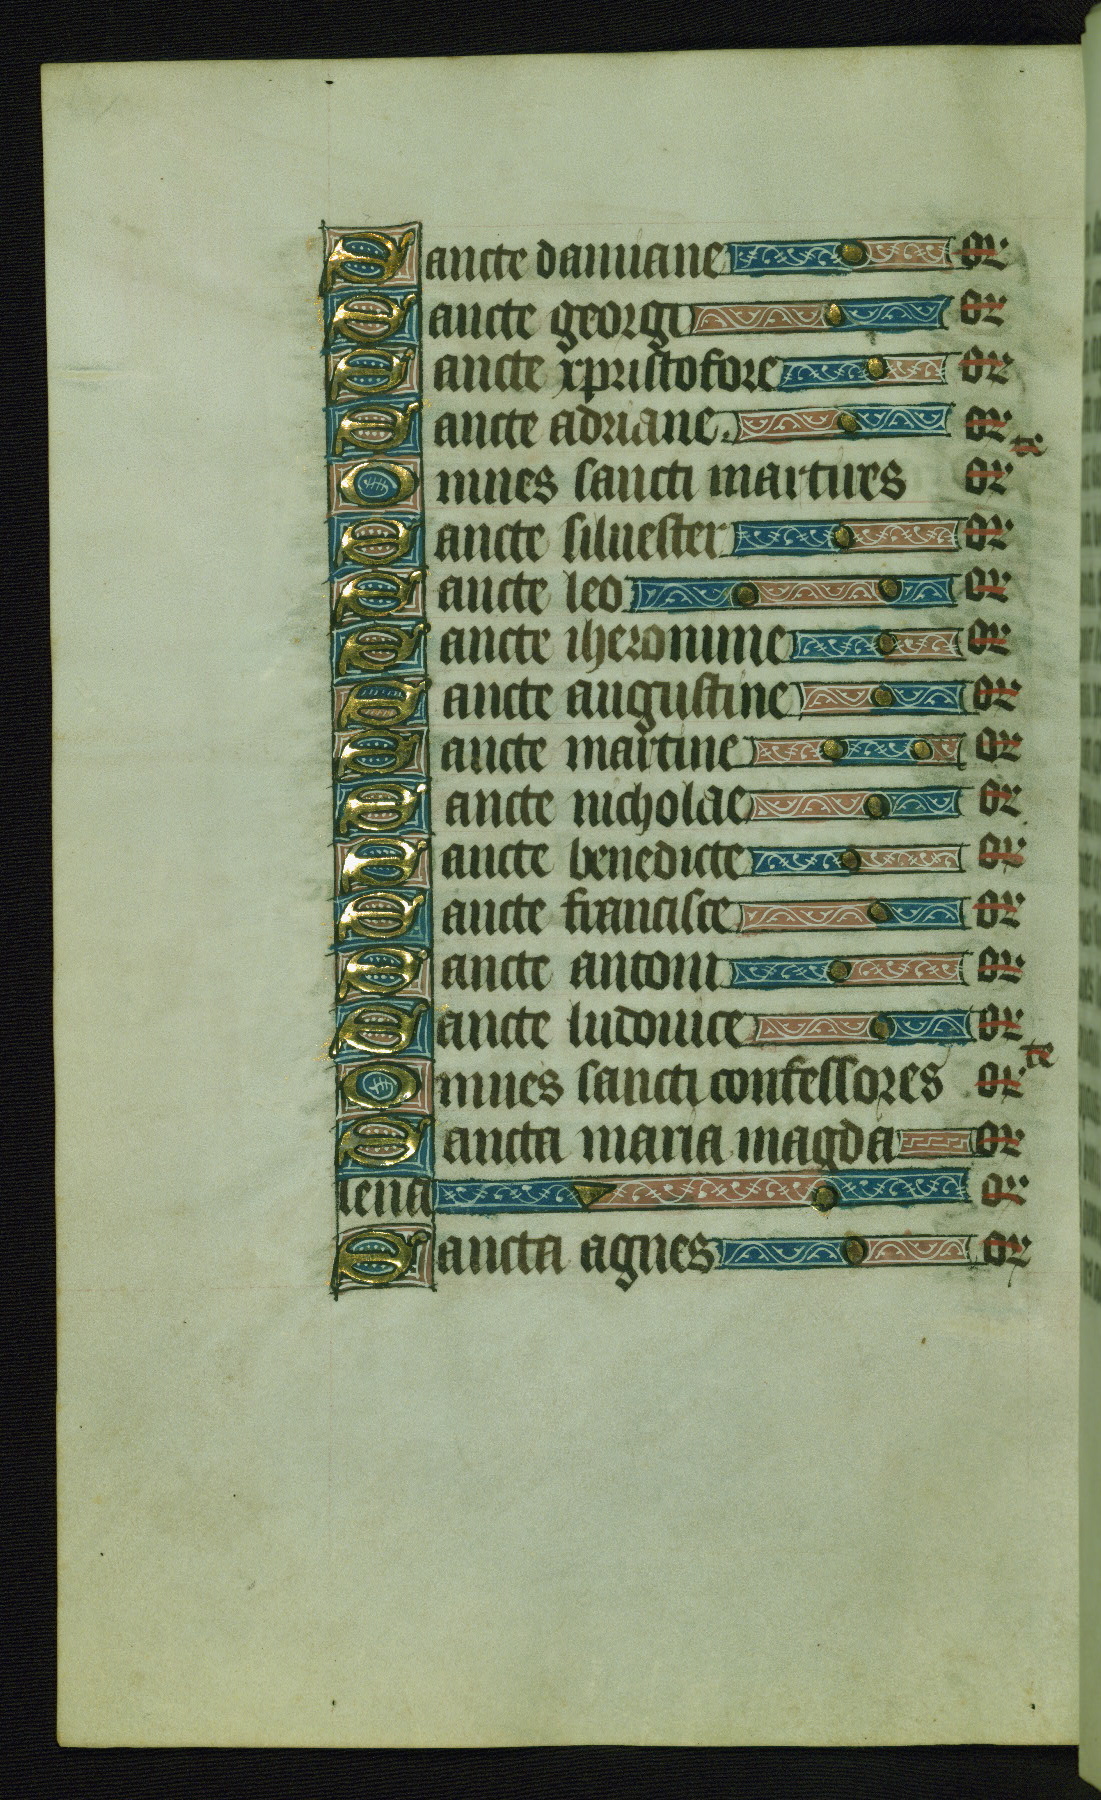 Sancte damiane or
Sancte georgi or
Sancte xpristofore or
Sancte adriane. or
Omnes sancti martires or te
Sancte siluester or
Sancte leo or
Sancte iheronime or
Sancte augustine or
Sancte martine or
Sancte nicholae or
Sancte benedicte or
Sancte francisce or
Sancte antoni or
Sancte ludouice or
Omnes sancti confessores or te
Sancta maria magda or
lena or
Sancta agnes or